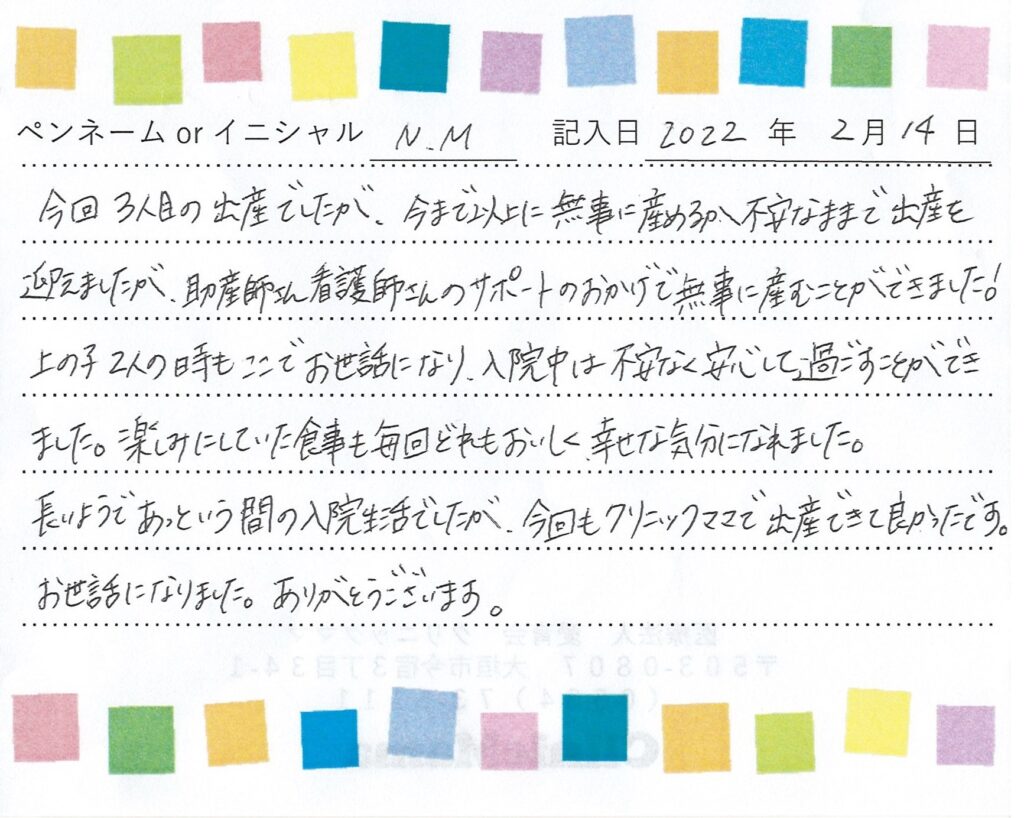 ペンネーム or イニシャル N.M 記入日 2022 年 2月 14 日
今回 3人目の 出産でしたが、今まで以上に 無事に産めるか、不安なままで 出産を
迎えましたが、助産師さん看護師さんのサポートのおかげで無事に産むことができました!
上の子 2人の時も ここで お世話になり、入院中は 不安なく 安心して過ごすことができ
ました。楽しみにしていた食事も毎回どれもおいしく、幸せな気分になれました。
長いようで あっという間の入院生活でしたが、今回もクリニックママで 出産できて良かったです。
お世話になりました。ありがとうございます。
医療法人 クリニックママ
〒503-0807 大垣市今宿3丁目34-1